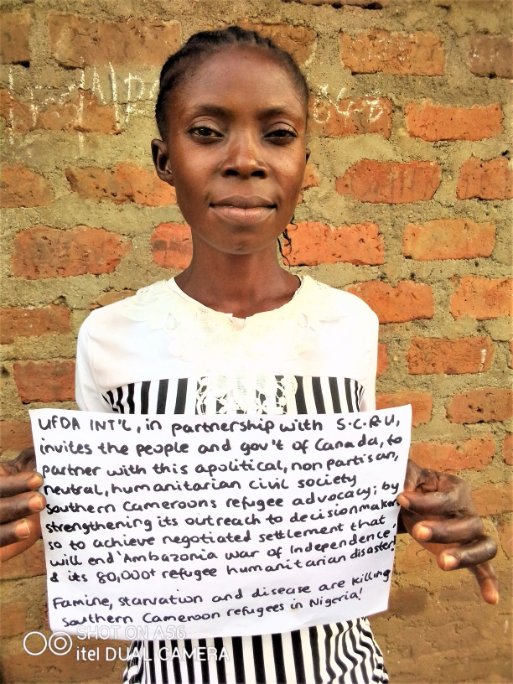 UFDA INT'L, in partnership with S.C.R.U,
invites the people and gov't of Canada, to
partner with this apolitical, non partisan,
neutral, humanitarian civil society
Southern Cameroons refugee advocacy; by
strengthening its outreach to decisionmakers
so to achieve negotiated settlement that
will end 'Ambazonia war of Independence'
& its 80,000+ refugee humanitarian disaster!
Famine, starvation and disease are killing
Southern Cameroon refugees in Nigeria!
SHOT ON A56
itel DUAL CAMERA